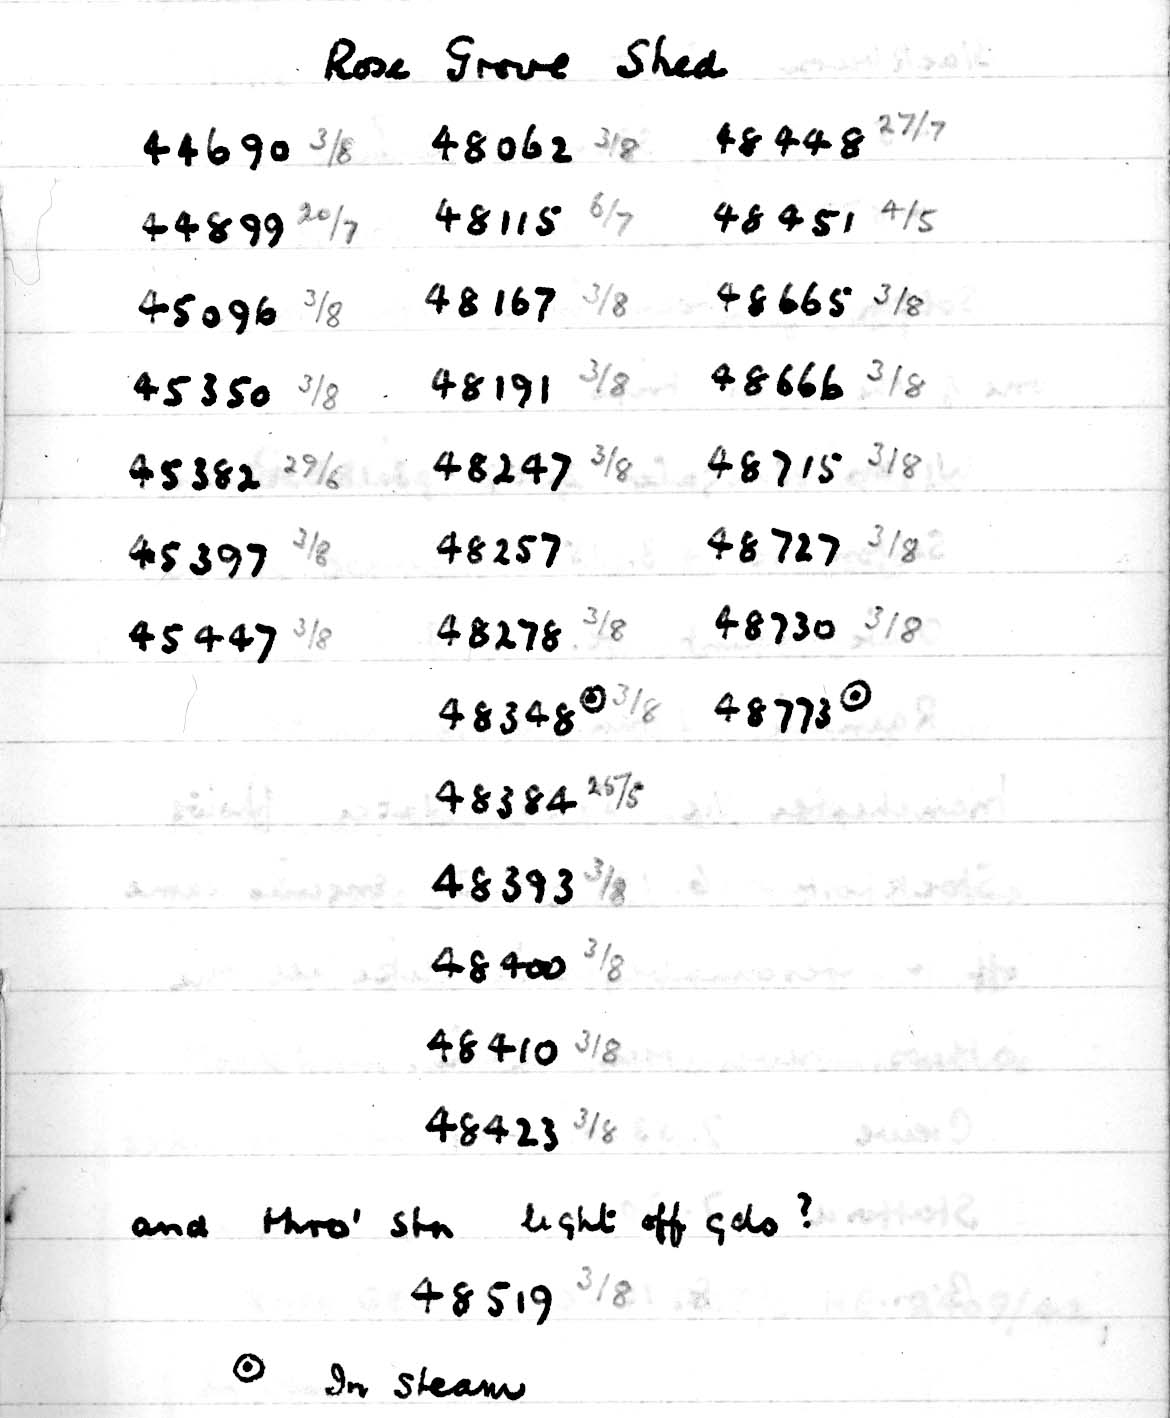 Rose Grove Shed
44690 3/8 48062 3/8 48448 27/7
44899 20/7 48115 6/7 48451 4/5
45096 3/8 48167 3/8 48665 3/8
45350 3/8 48191 3/8 48666 3/8
45382 29/6 48247 3/8 48715 3/8
45397 3/8 48257 48727 3/8
45447 3/8 48278 3/8 48730 3/8
48348 ⊙ 3/8 48773 ⊙
48384 25/5
48393 3/8
48400 3/8
48410 3/8
48423 3/8
and thro' stn light off gds?
48519 3/8
⊙ In steam